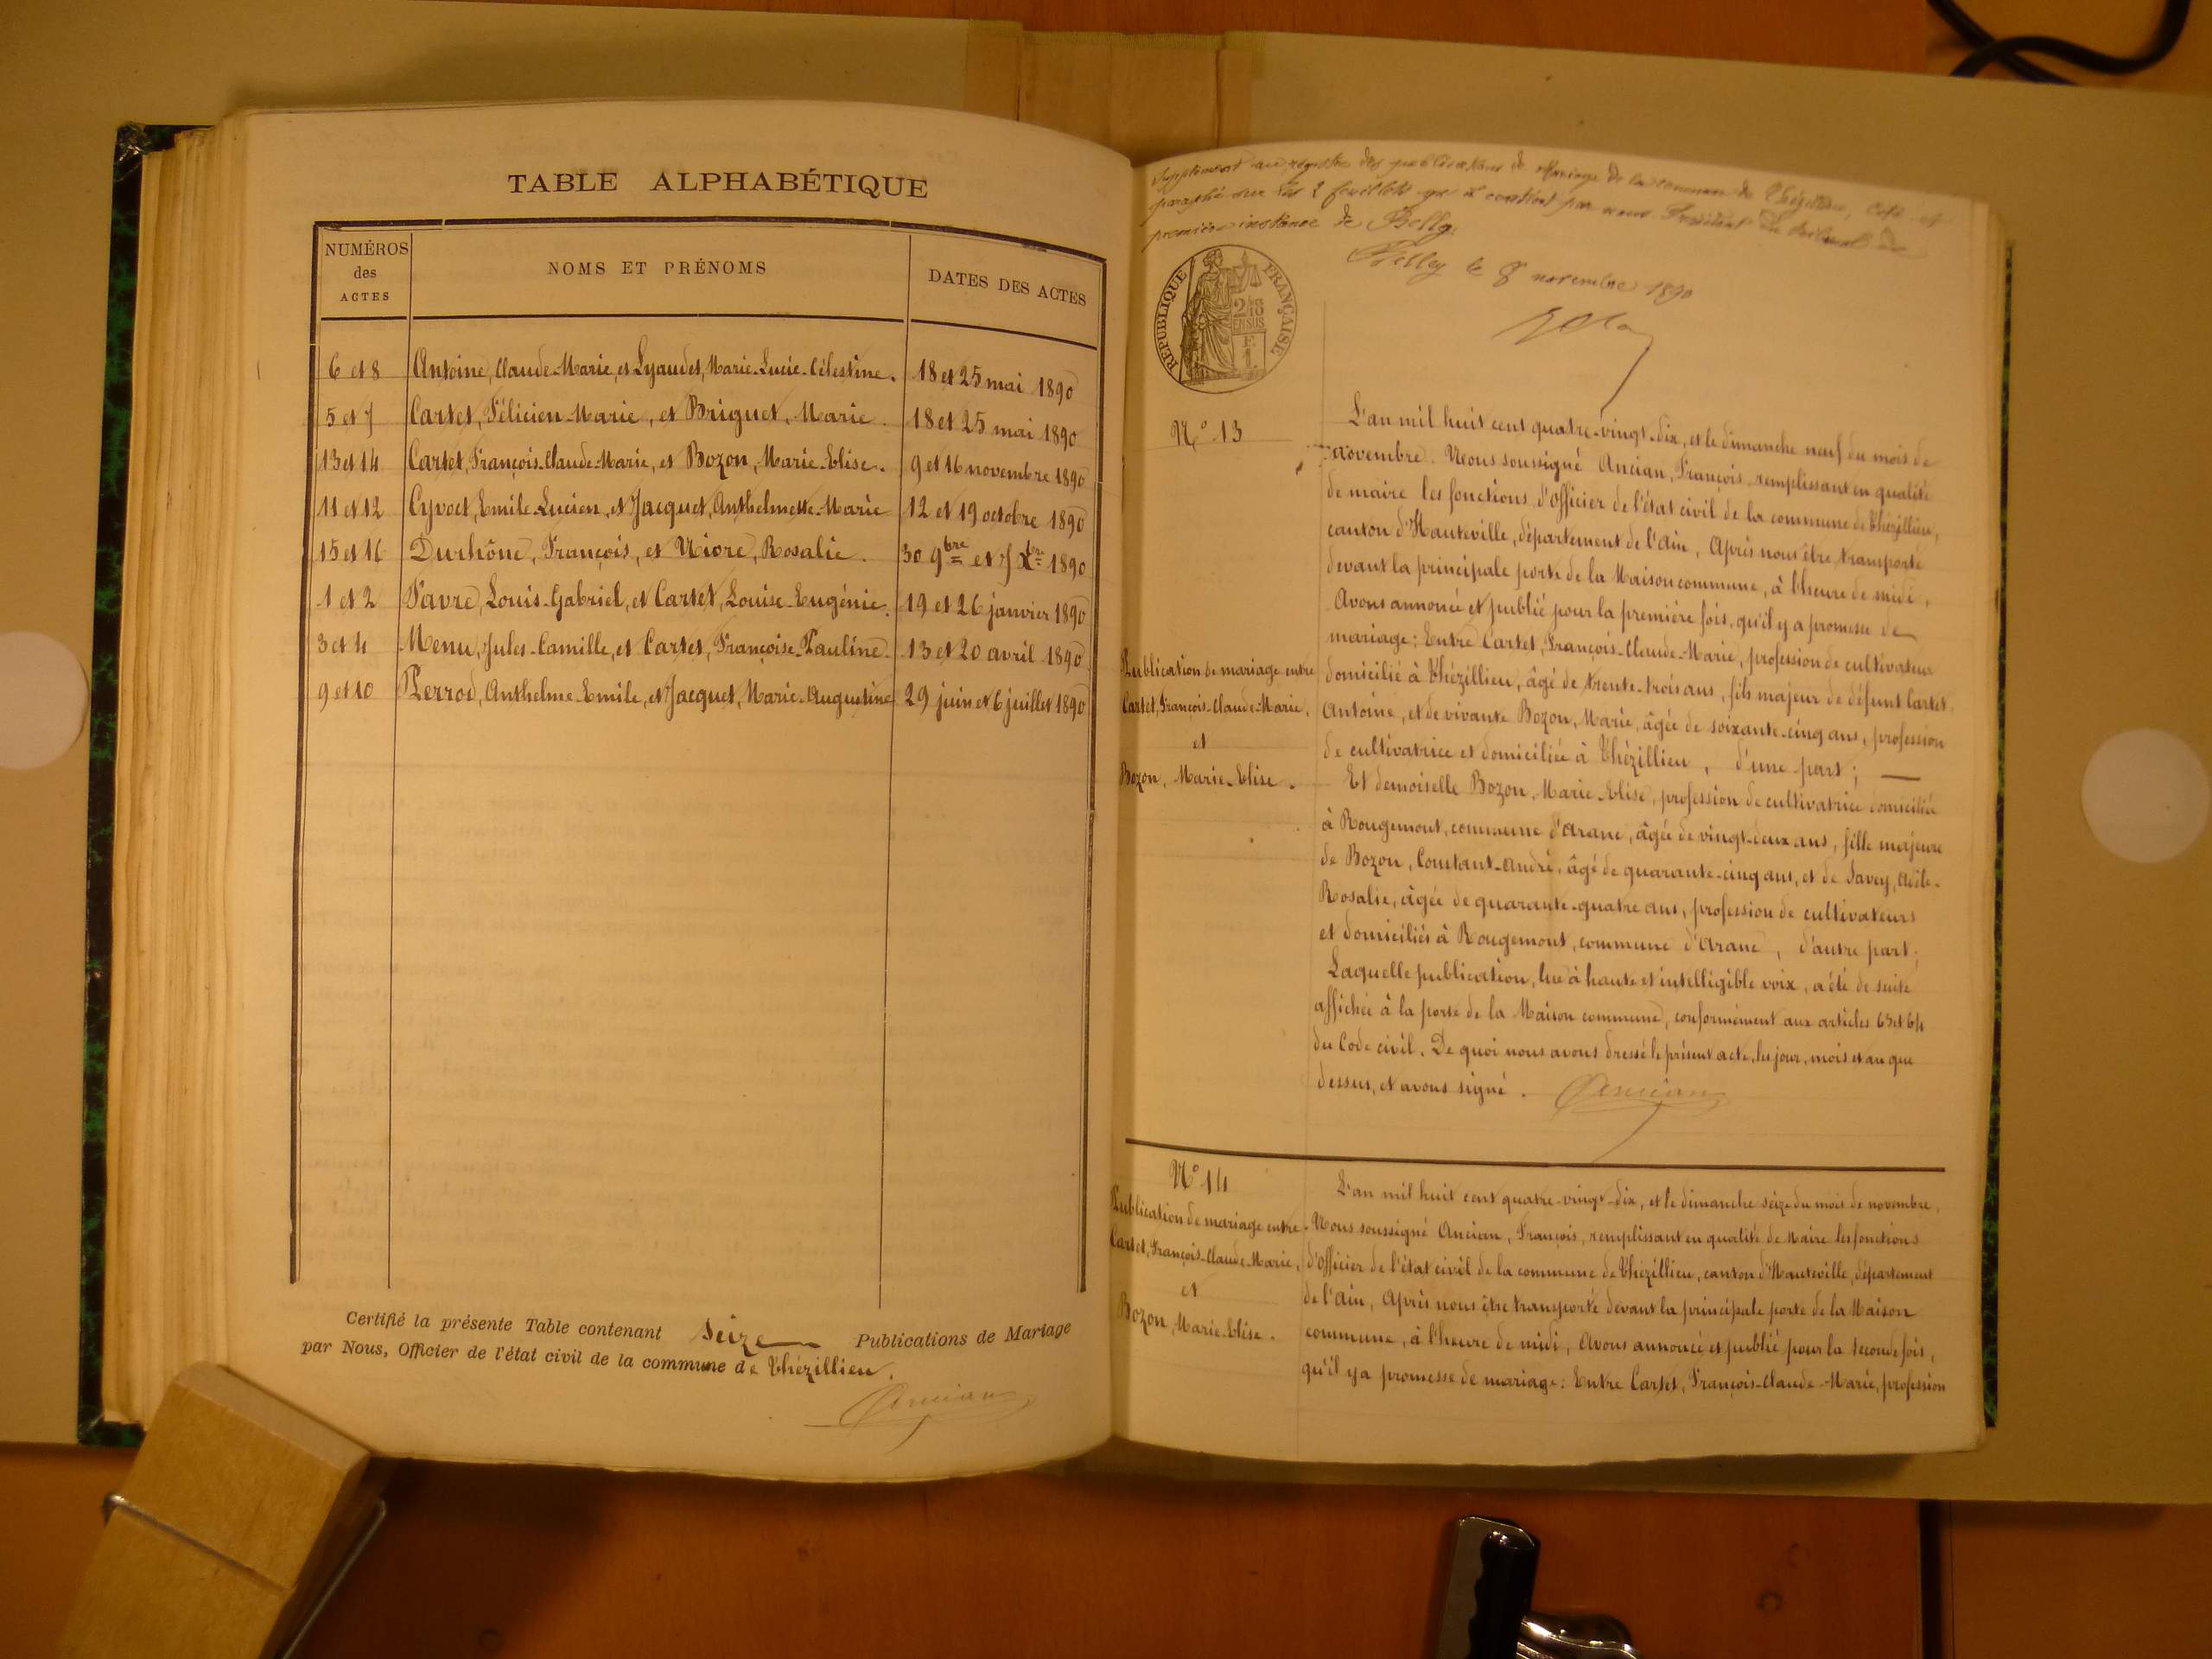 TABLE ALPHABÉTIQUE
NUMÉROS des ACTES
NOMS ET PRÉNOMS
DATES DES ACTES
6 et 8 Antoine, Claude-Marie, et Lyaudet, Marie-Lucie-Célestine. 18 et 25 mai 1890
5 et 7 Cartet, Félicien-Marie, et Briguet, Marie. 18 et 25 mai 1890
13 et 14 Cartet, François-Claude-Marie, et Bozon, Marie-Elise. 9 et 16 novembre 1890
11 et 12 Cyvoct, Emile-Lucien, et Jacquet, Anthelmette-Marie 12 et 19 octobre 1890
15 et 16 Durhône, François, et Niore, Rosalie. 30 9bre et 7 Xbre 1890
1 et 2 Favre, Louis-Gabriel, et Cartet, Louise-Eugénie. 19 et 26 janvier 1890
3 et 4 Menu, Jules-Camille, et Cartet, Françoise-Pauline. 13 et 20 avril 1890
9 et 10 Perrod, Anthelme-Emile, et Jacquet, Marie-Augustine 29 juin et 6 juillet 1890
Certifié la présente Table contenant Seize Publications de Mariage
par Nous, Officier de l'état civil de la commune de Thézillieu.
Ancian
Supplément au registre des publications de Mariage de la commune de Thézillieu, coté et
paraphé sur les 2 feuillets qu'il contient par nous Président du tribunal de
première instance de Belley.
Belley le 8 novembre 1890
RÉPUBLIQUE FRANÇAISE
N° 13
L'an mil huit cent quatre-vingt-dix, et le dimanche neuf du mois de
novembre. Nous soussigné Ancian, François, remplissant en qualité
de maire les fonctions d'officier de l'état civil de la commune de Thézillieu,
canton d'Hauteville, département de l'Ain, Après nous être transporté
devant la principale porte de la Maison commune, à l'heure de midi,
Avons annoncé et publié pour la première fois, qu'il y a promesse de
mariage: Entre Cartet, François-Claude-Marie, profession de cultivateur
Publication de mariage entre
Cartet, François-Claude-Marie,
et
Bozon, Marie-Elise.
domicilié à Thézillieu, âgé de trente-trois ans, fils majeur de défunt Cartet,
Antoine, et de vivante Bozon, Marie, âgée de soixante-cinq ans, profession
de cultivatrice et domiciliée à Thézillieu, d'une part;
Et demoiselle Bozon, Marie-Elise, profession de cultivatrice domiciliée
à Rougemont, commune d'Aranc, âgée de vingt-deux ans, fille majeure
de Bozon, Constant-André, âgé de quarante-cinq ans, et de Savey, Adèle-
Rosalie, âgée de quarante-quatre ans, profession de cultivateurs
et domiciliés à Rougemont, commune d'Aranc, d'autre part;
Laquelle publication, lue à haute et intelligible voix, a été de suite
affichée à la porte de la Maison commune, conformément aux articles 63 et 64
du Code civil. De quoi nous avons dressé le présent acte, les jour, mois et an que
dessus, et avons signé. Ancian
N° 14
Publication de mariage entre
Cartet, François-Claude-Marie,
et
Bozon, Marie-Elise.
L'an mil huit cent quatre-vingt-dix, et le dimanche seize du mois de novembre,
Nous soussigné Ancian, François, remplissant en qualité de Maire les fonctions
d'Officier de l'état civil de la commune de Thézillieu, canton d'Hauteville, département
de l'Ain, Après nous être transporté devant la principale porte de la Maison
commune, à l'heure de midi, Avons annoncé et publié pour la seconde fois,
qu'il y a promesse de mariage: Entre Cartet, François-Claude-Marie, profession